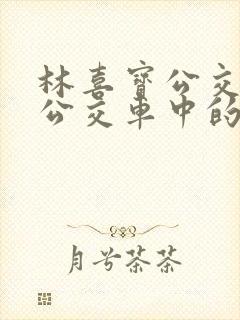 林喜宝公交
公交车中的
月兮茶茶